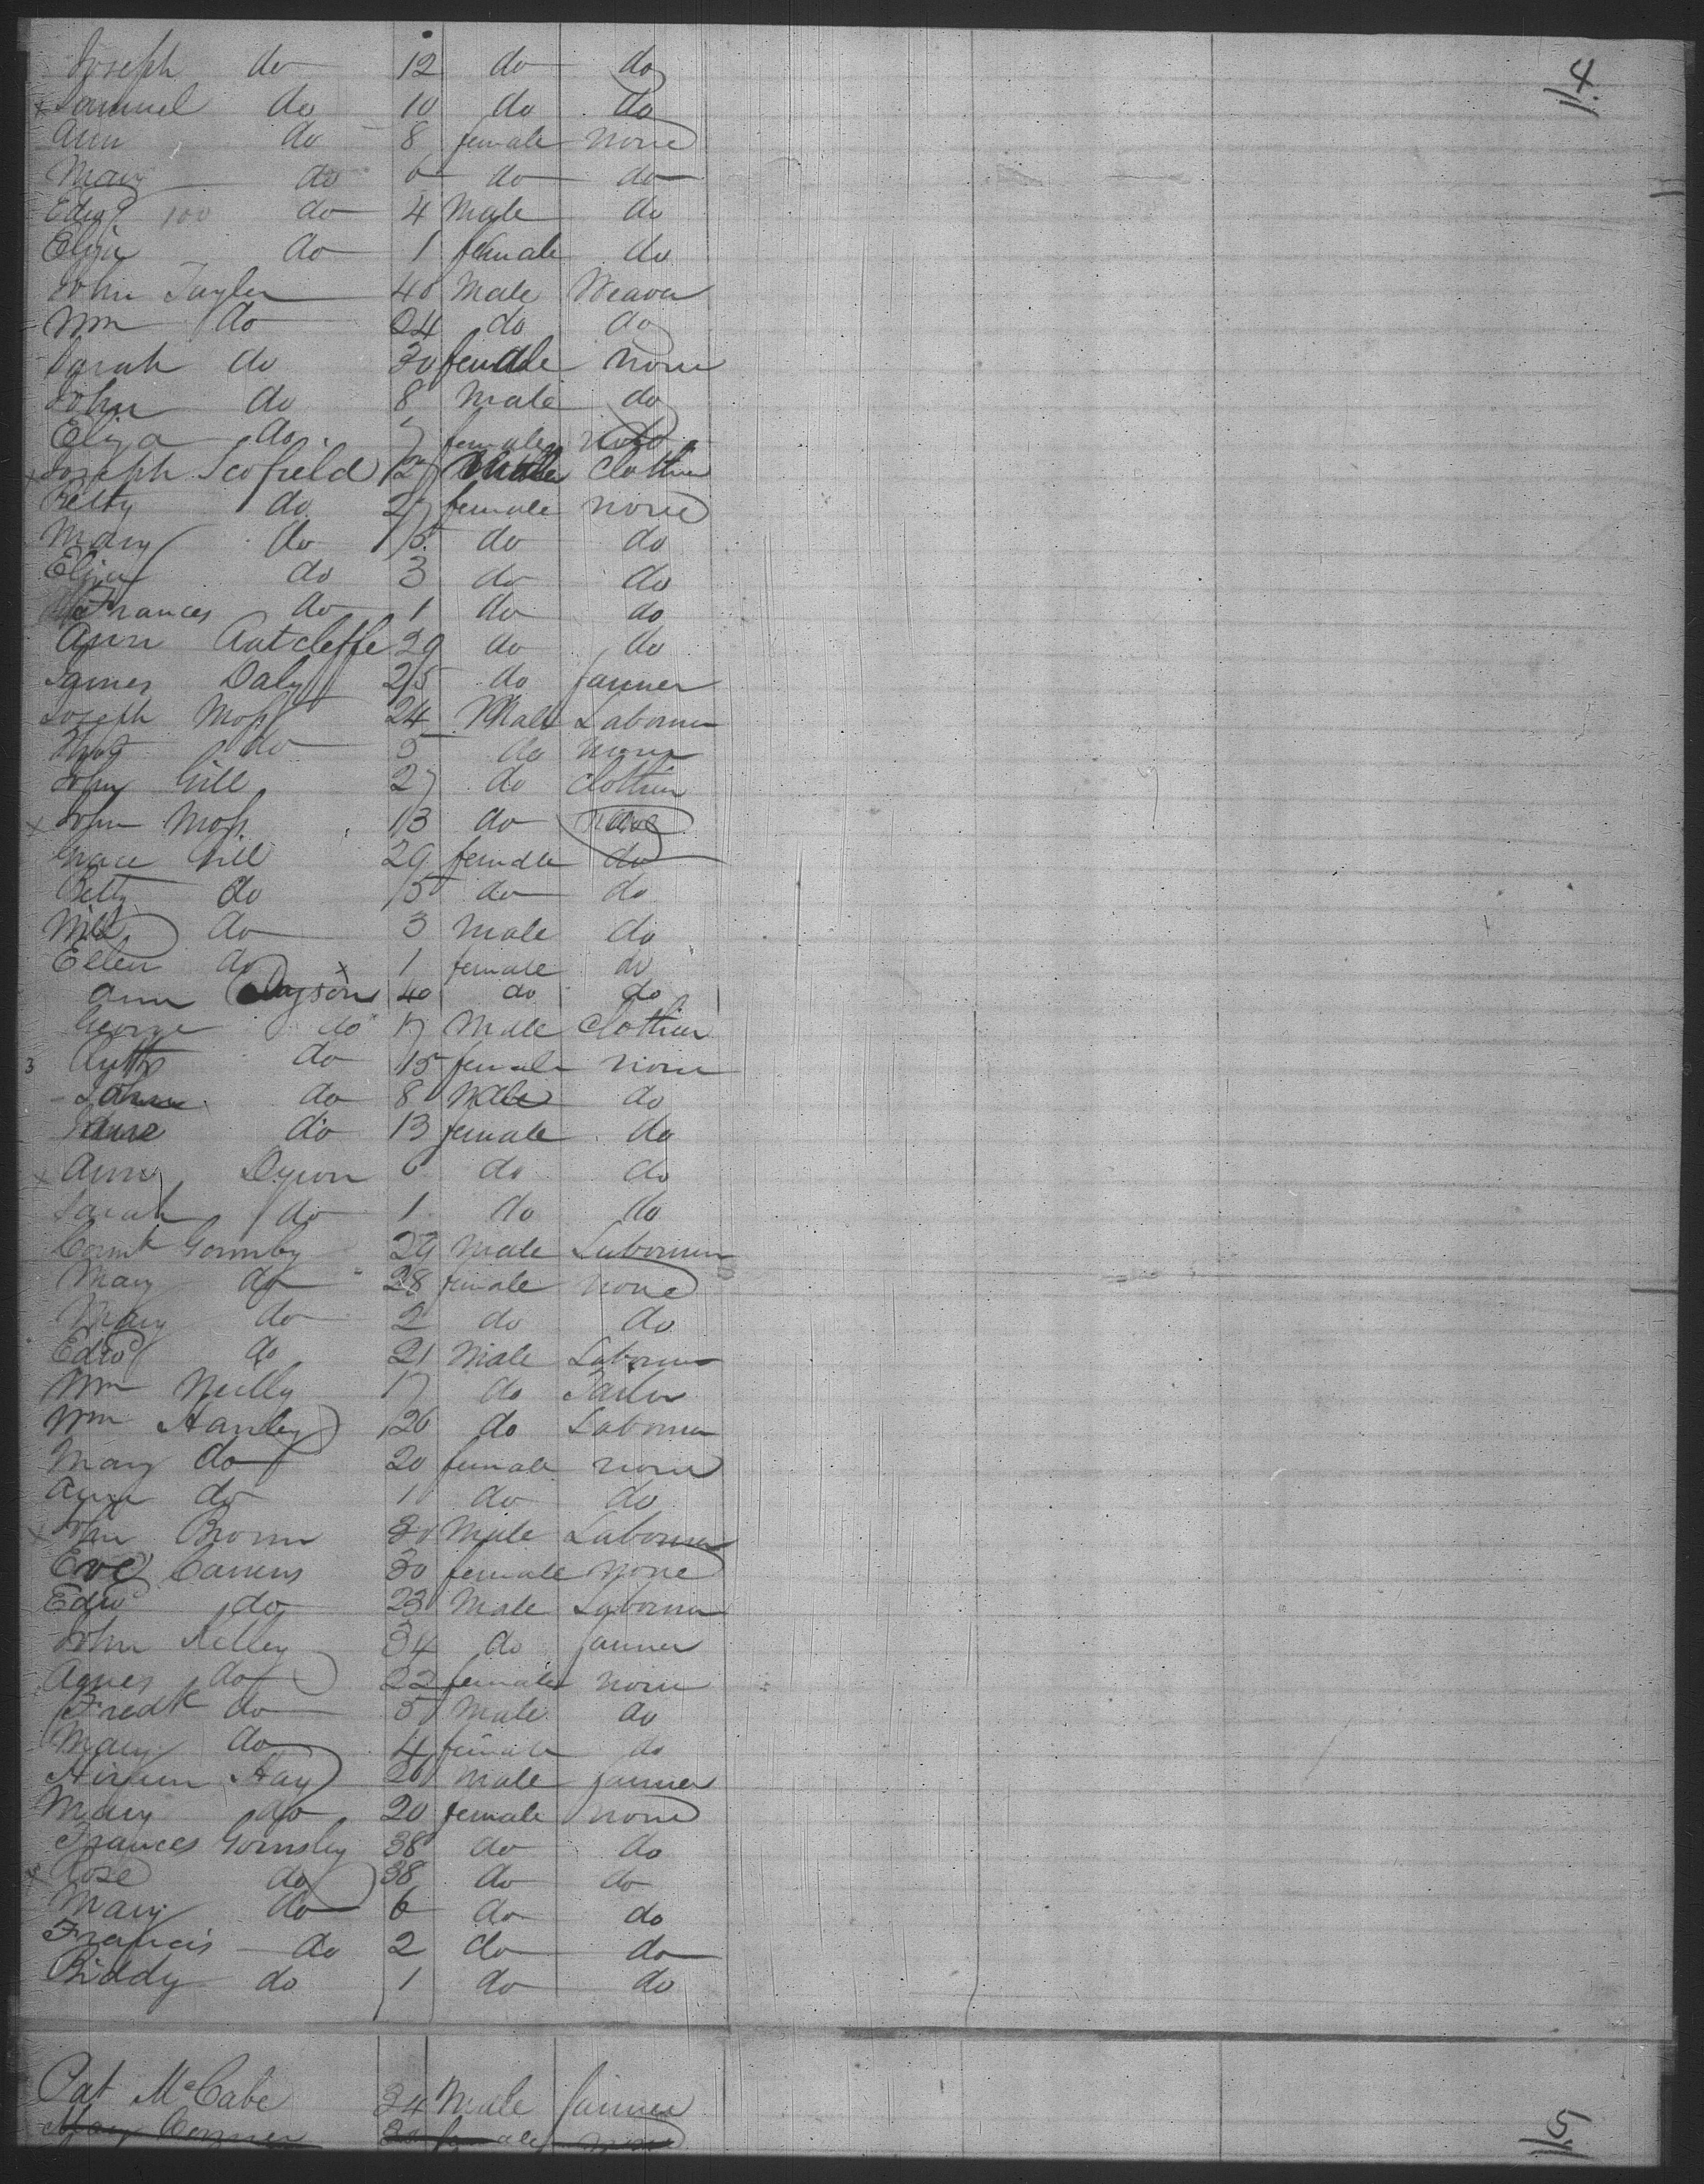 4.
Joseph do 12 do do
x Samuel do 10 do do
Ann do 8 female none
Mary do 6 do do
Edwd 100 do 4 Male do
Eliza do 1 female do
John Tayler 40 Male Weaver
Wm do 24 do do
Sarah do 30 female none
John do 8 Male do
Eliza do. 7 female
x Joseph Scofield 27 Male Clothier
Betty do 27 female none
Mary do 5 do do
Eliza do 3 do do
Frances do 1 do do
Ann 29 do do
James Daly 25 do farmer
Joseph Moss 24 Male Laborer
Thos do 5 do none
John Gill 27 do Clothier
x John Moss 13 do none
Grace Gill 29 female do
Betty do 5 do do
do 3 Male do
Ellen do 1 female do
Ann Dayson 40 do do
George do 17 Male Clothier
3 Ruth do 15 female none
John do 8 Male do
Jane do 13 female do
x Ann Dyson 6 do do
Sarah do 1 do do
Gormby 29 Male Laborer
Mary do 28 female none
Mary do 2 do do
Edwd do 21 Male Laborer
Wm Neilly 17 do Tailor
Wm Hanley 26 do Laborer
Mary do 20 female none
Ann do 1 do do
x John Brown 30 Male Laborer
Eve 30 female none
Edwd do 23 Male Laborer
John Kelley 34 do farmer
Agnes do 22 female none
Fredk do 5 Male do
Mary do 4 female do
Hiram Hay 26 Male farmer
Mary do 20 female none
Frances Gormsley 38 do do
x Rose do 38 do do
Mary do 6 do do
Francis do 2 do do
Biddy do 1 do do
Pat McCabe 34 Male farmer
Mary female none
5.